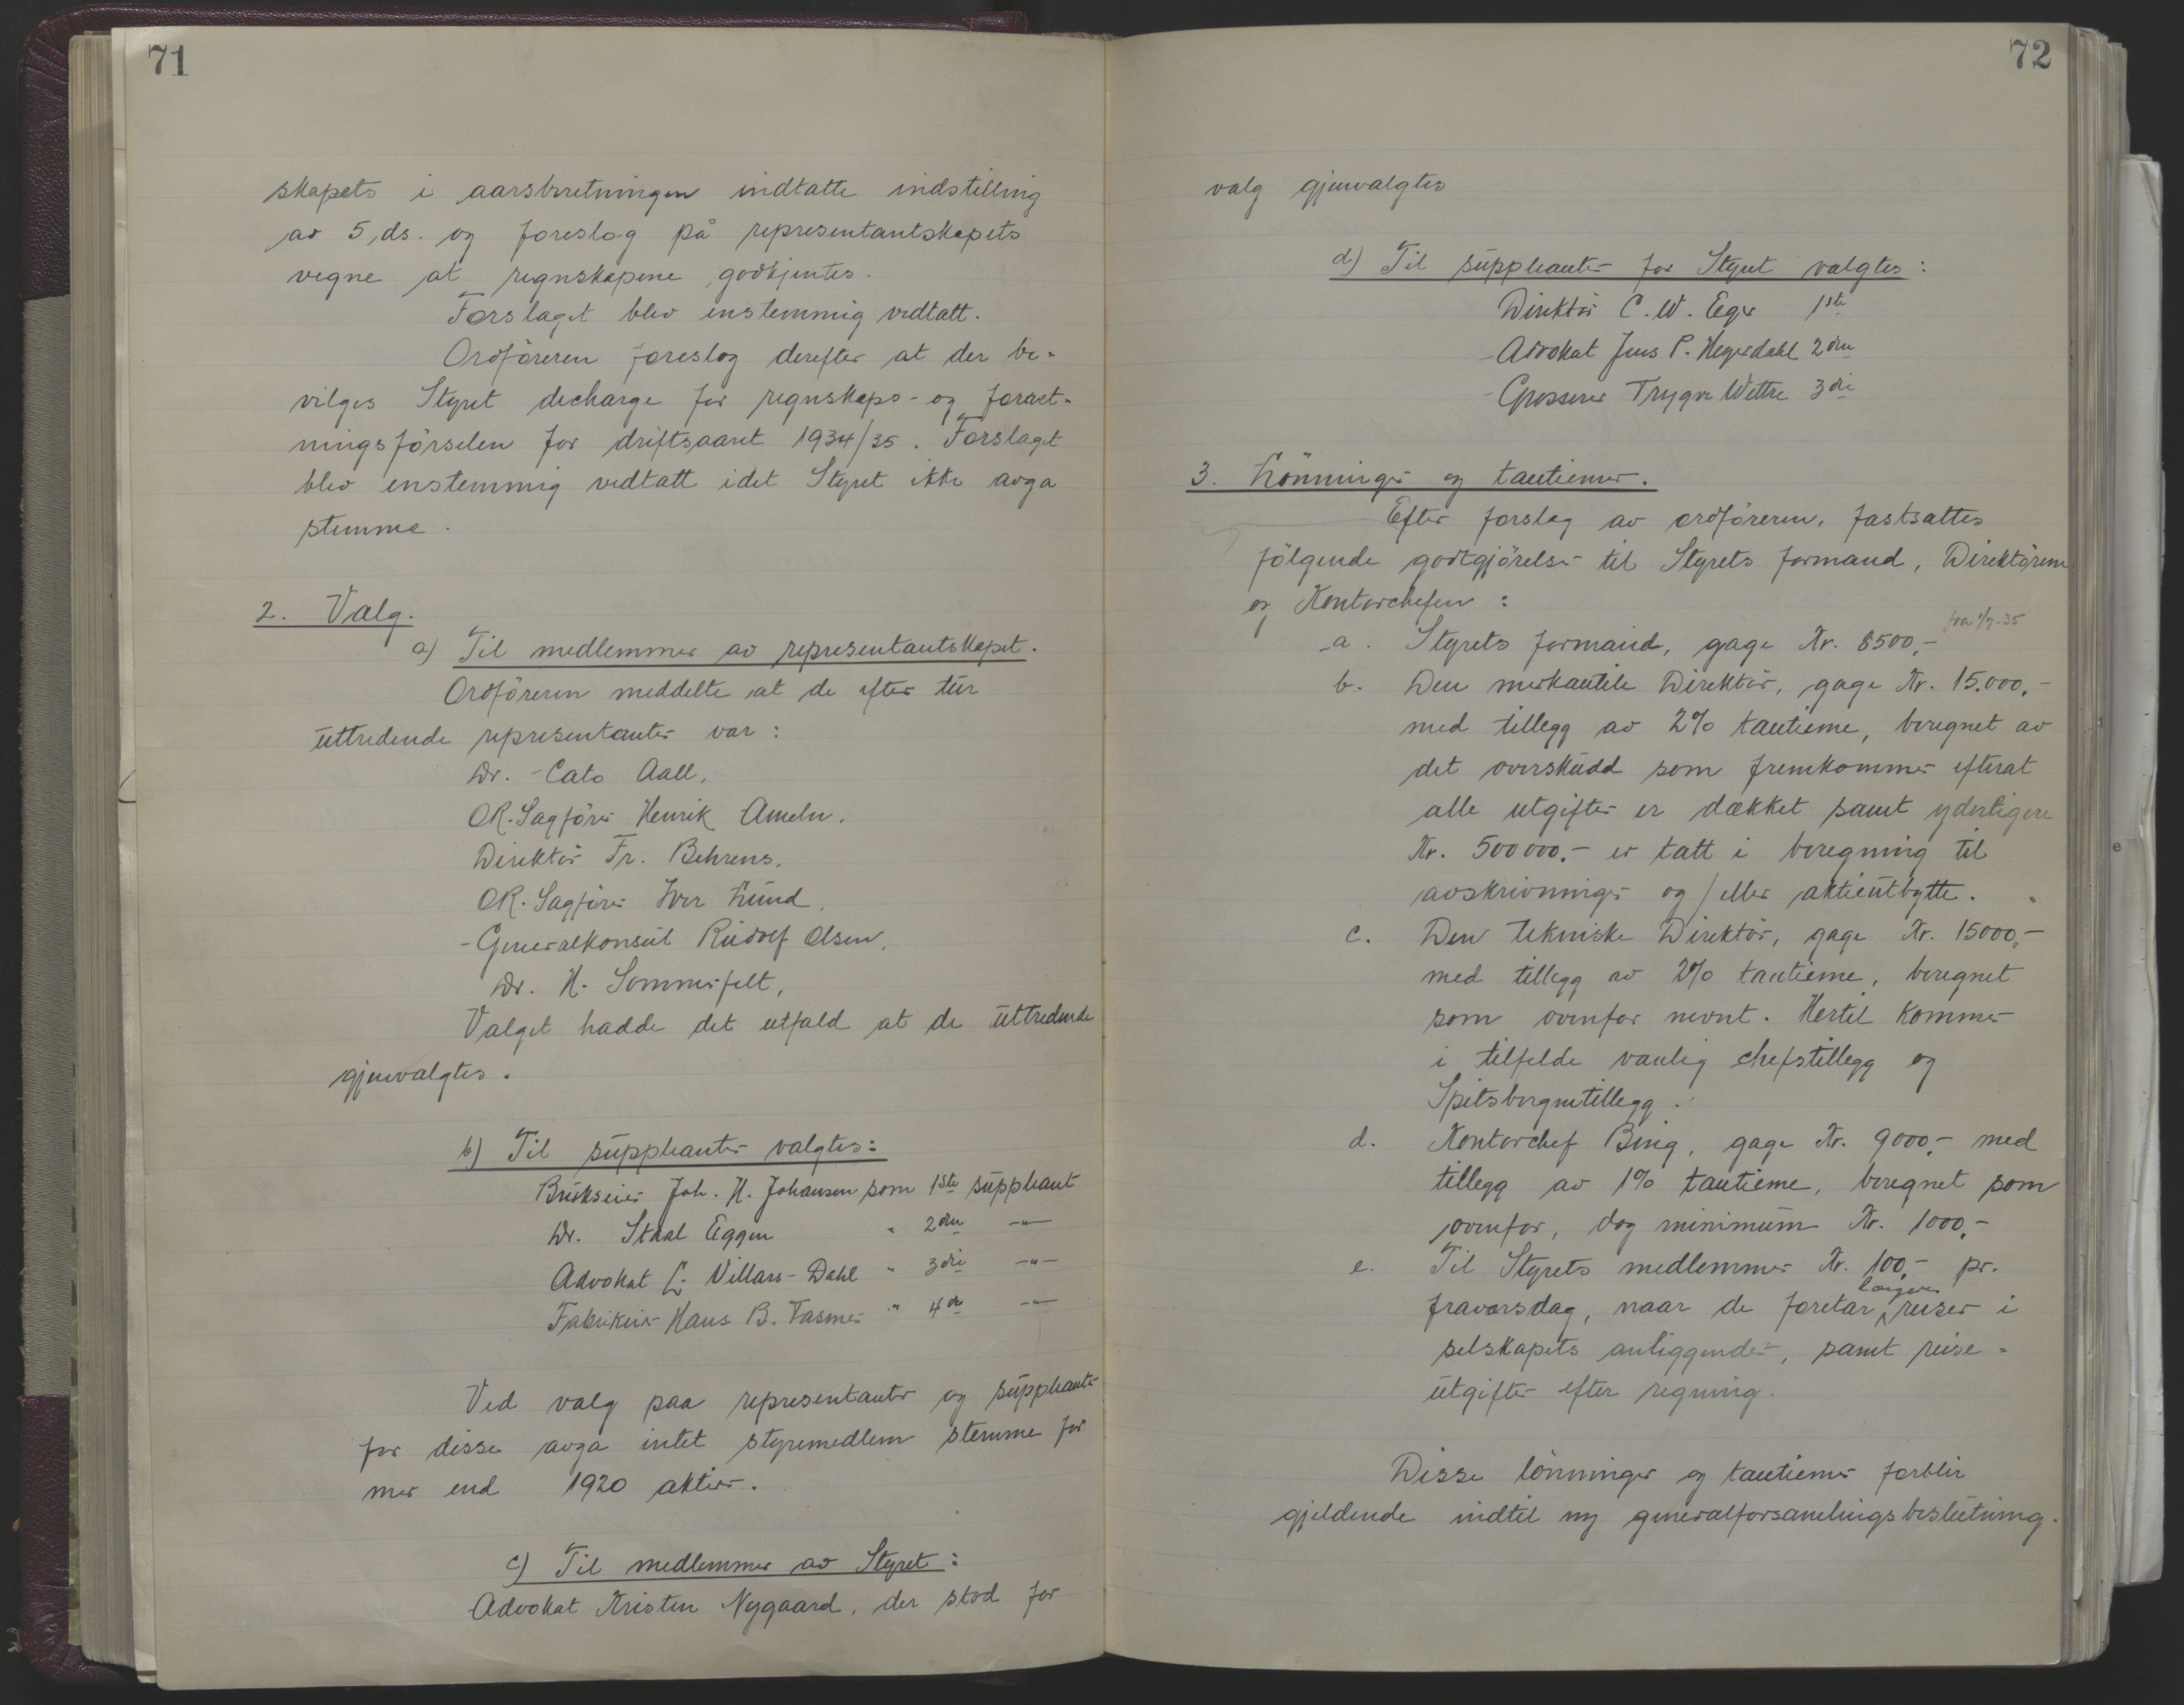 71
skapets i aarsberetningen indtatte indstilling
av 5 ds. og foreslog på representantskapets
vegne at regnskapene godkjentes.
Forslaget blev enstemmig vedtatt.
Ordföreren foreslog derefter at der be-
vilges Styret decharge for regnskaps- og forret-
ningsförselen for driftsaaret 1934/35. Forslaget
blev enstemmig vedtatt idet Styret ikke avga
stemme.
2. Valg.
a) Til medlemmer av representantskapet.
Ordföreren meddelte at de efter tur
uttredende representanter var:
Dr. Cato Aall,
OR. Sagförer Henrik Ameln,
Direktör Fr. Behrens,
OR. Sagförer Iver Lund,
Generalkonsul Rudolf Olsen,
Dr. H. Sommerfelt,
Valget hadde det utfald at de uttredende
gjenvalgtes.
b) Til suppleanter valgtes:
Brukseier Joh. H. Johansen som 1ste suppleant
Dr. Staal Eggen " 2den -"-
Advokat L. Villars-Dahl " 3die -"-
Fabrikeier Hans B. Fasmer " 4de -"-
Ved valg paa representanter og suppleanter
for disse avga intet styremedlem stemme for
mer end 1920 aktier.
c) Til medlemmer av Styret:
Advokat Kristen Nygaard, der stod for
72
valg gjenvalgtes
d) Til suppleanter for Styret valgtes:
Direktör C. W. Eger 1ste
Advokat Jens P. Heyerdahl 2den
Grosserer Trygve Wettre 3die
3. Lönninger og tantiemer.
Efter forslag av ordföreren, fastsattes
fölgende godtgjörelser til Styrets formand, Direktörene
og Kontorchefen:
fra 1/7-35
a. Styrets formand, gage Kr. 8500,-
b. Den merkantile Direktör, gage Kr. 15.000,-
med tillegg av 2% tantieme, beregnet av
det overskudd som fremkommer efterat
alle utgifter er dækket samt yderligere
Kr. 500000,- er tatt i beregning til
avskrivninger og/eller aktieutbytte.
c. Den tekniske Direktör, gage Kr. 15000,-
med tillegg av 2% tantieme, beregnet
som ovenfor nevnt. Hertil kommer
i tilfelde vanlig chefstillegg og
Spitsbergentillegg.
d. Kontorchef Bing, gage Kr. 9000,- med
tillegg av 1% tantieme, beregnet som
ovenfor, dog minimum Kr. 1000,-
e. Til Styrets medlemmer Kr. 100,- pr.
længere
fraværsdag, naar de foretar reiser i
selskapets anliggender, samt reise-
utgifter efter regning.
Disse lönninger og tantiemer forblir
gjeldende indtil ny generalforsamlingsbeslutning.